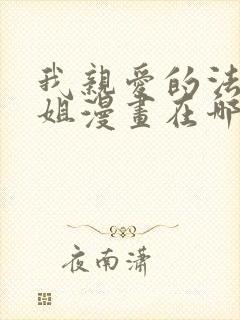 我親愛的法
姐漫畫在哪
夜南潇